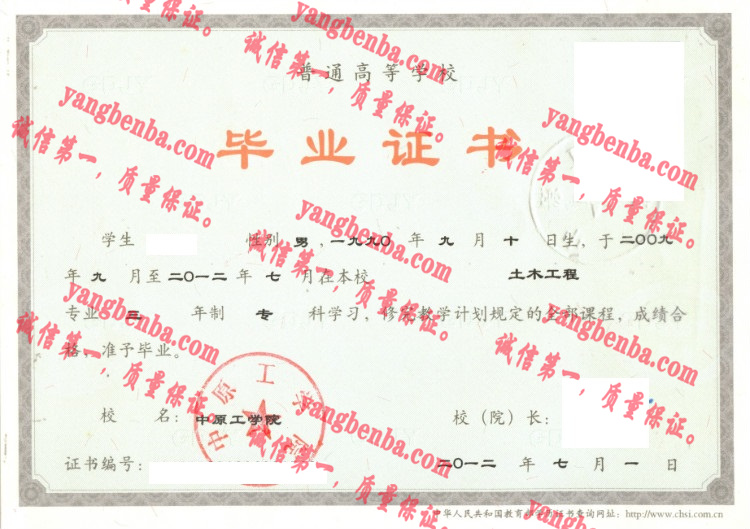 普通高等学校
毕业证书
学生 性别 男，一九九〇年 九 月 十 日生，于二〇〇九
年 九 月至二〇一二年 七 月在本校 土木工程
专业 三 年制 专 科学习，修完教学计划规定的全部课程，成绩合
格，准予毕业。
校 名：中原工学院 校（院）长：
证书编号：
二〇一二 年 七 月 一 日
中华人民共和国教育部学历证书查询网址：http://www.chsi.com.cn
中原工学院
yangbenba.com
诚信第一，质量保证。
yangbenba.com
诚信第一，质量保证。
yangbenba.com
诚信第一，质量保证。
yangbenba.com
诚信第一，质量保证。
yangbenba.com
诚信第一，质量保证。
yangbenba.com
诚信第一，质量保证。
yangbenba.com
诚信第一，质量保证。
yangbenba.com
诚信第一，质量保证。